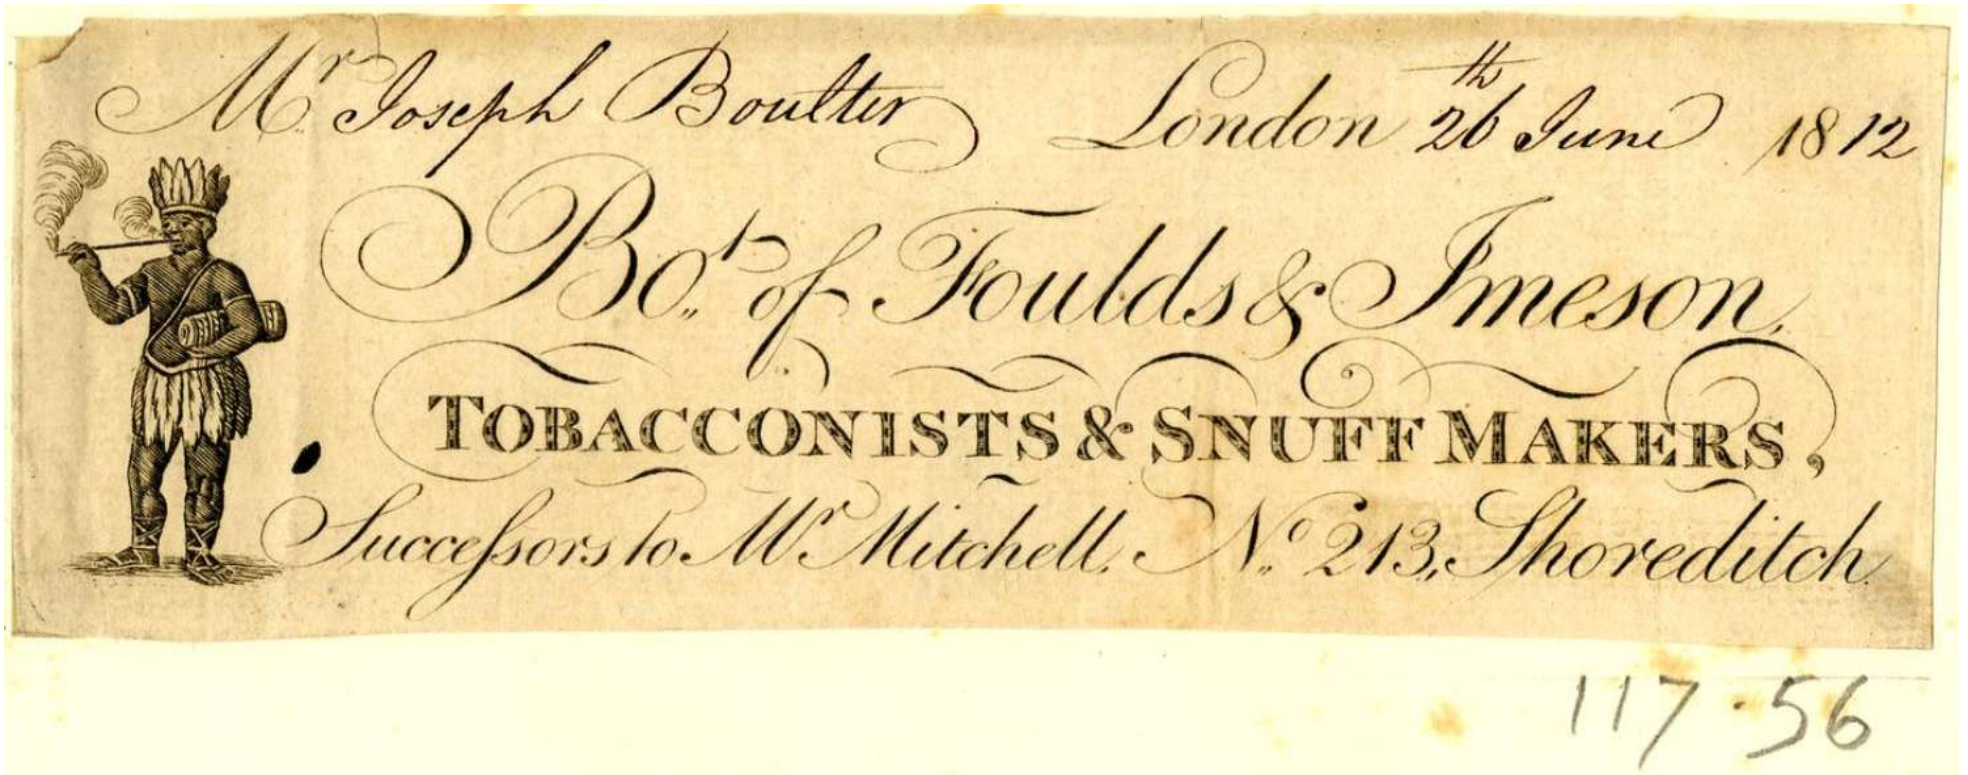 Mr. Joseph Boulter London 26th June 1812
Bot. of Foulds & Imeson.
TOBACCONISTS & SNUFF MAKERS,
Succeſsors to Mr Mitchell. No. 213, Shoreditch.
117.56